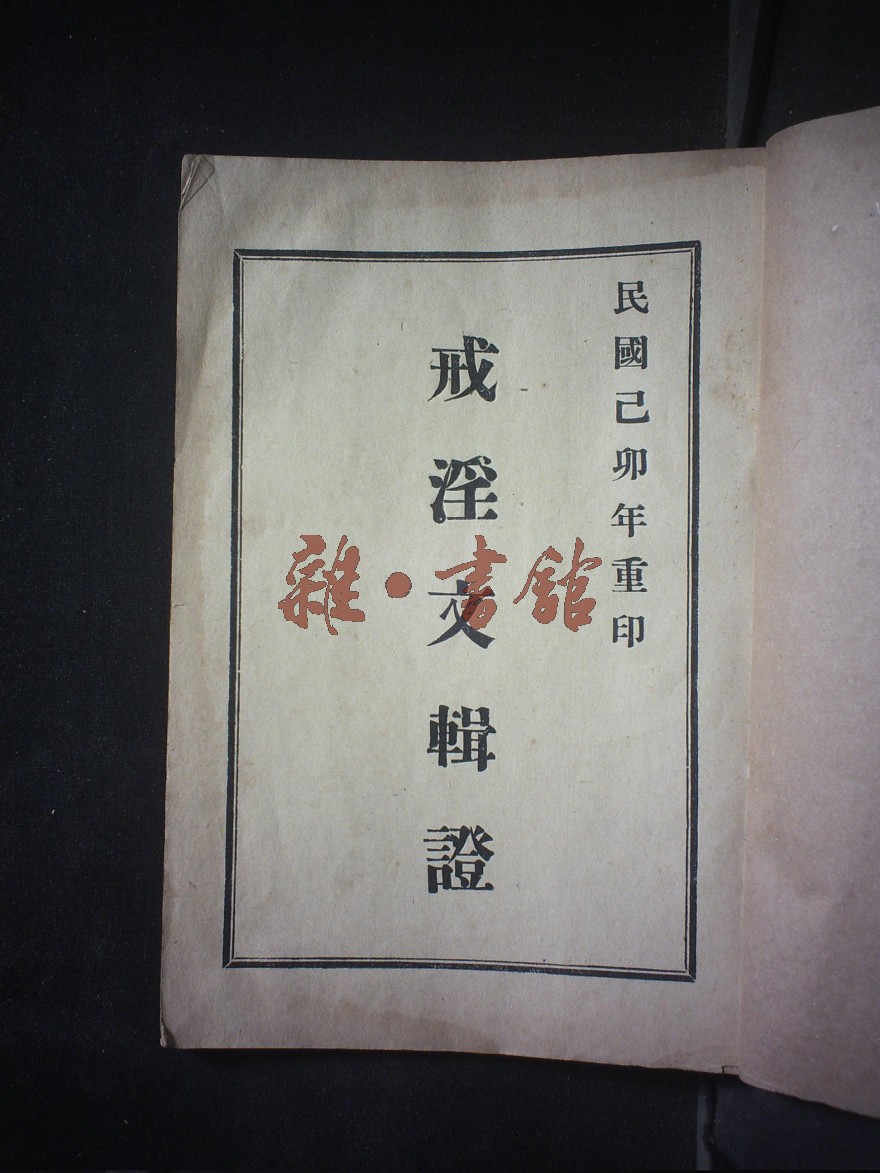 民國己卯年重印
戒淫文輯證
雜·書館